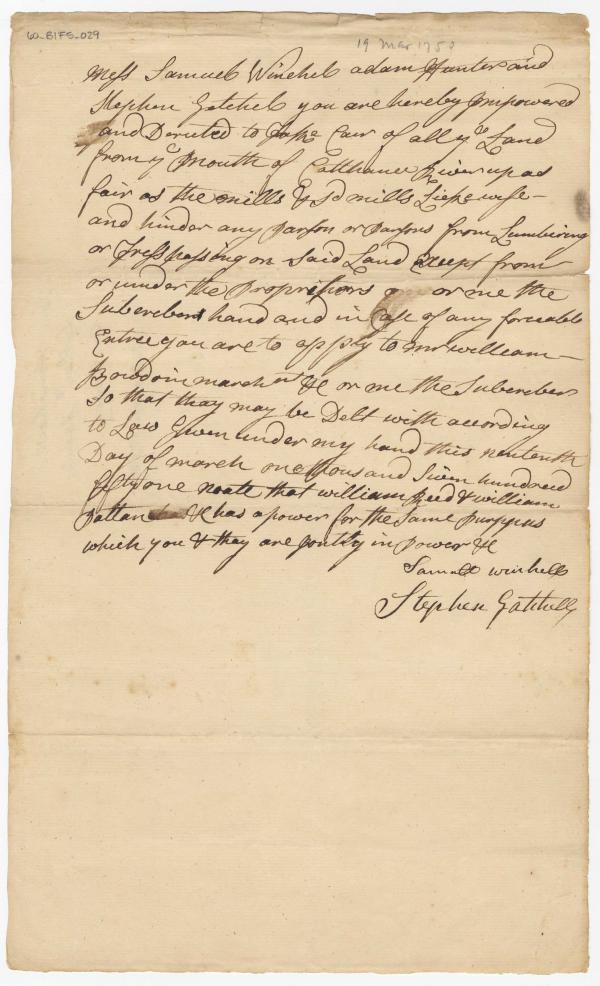 60-B1F5-029
19 Mar 1750
Mess Samuel Winchel adam Hunter and
Stephen Getchel you are hereby Impowered
and Derected to Take Cair of all ye Land
from ye Mouth of Catthance River up as
fair as the mills & Sd mills Liekewise
and hinder any Parson or Parsons from Lumbering
or Tresspassing on Said Land Except from
or under the Propriters or me the
Subercber hand and in Case of any forceable
Entree you are to apply to mr william
Bowdoin marchnt &c or me the Subercber
So that thay may be Delt with according
to Law Given under my hand this ninteenth
Day of march one thousand Seven hundred
fifty one noate that william Reed & william
Pattan &c has a power for the Same purppus
which you & they are Jontly in Power &c
Samuel winchell
Stephen Gatchell